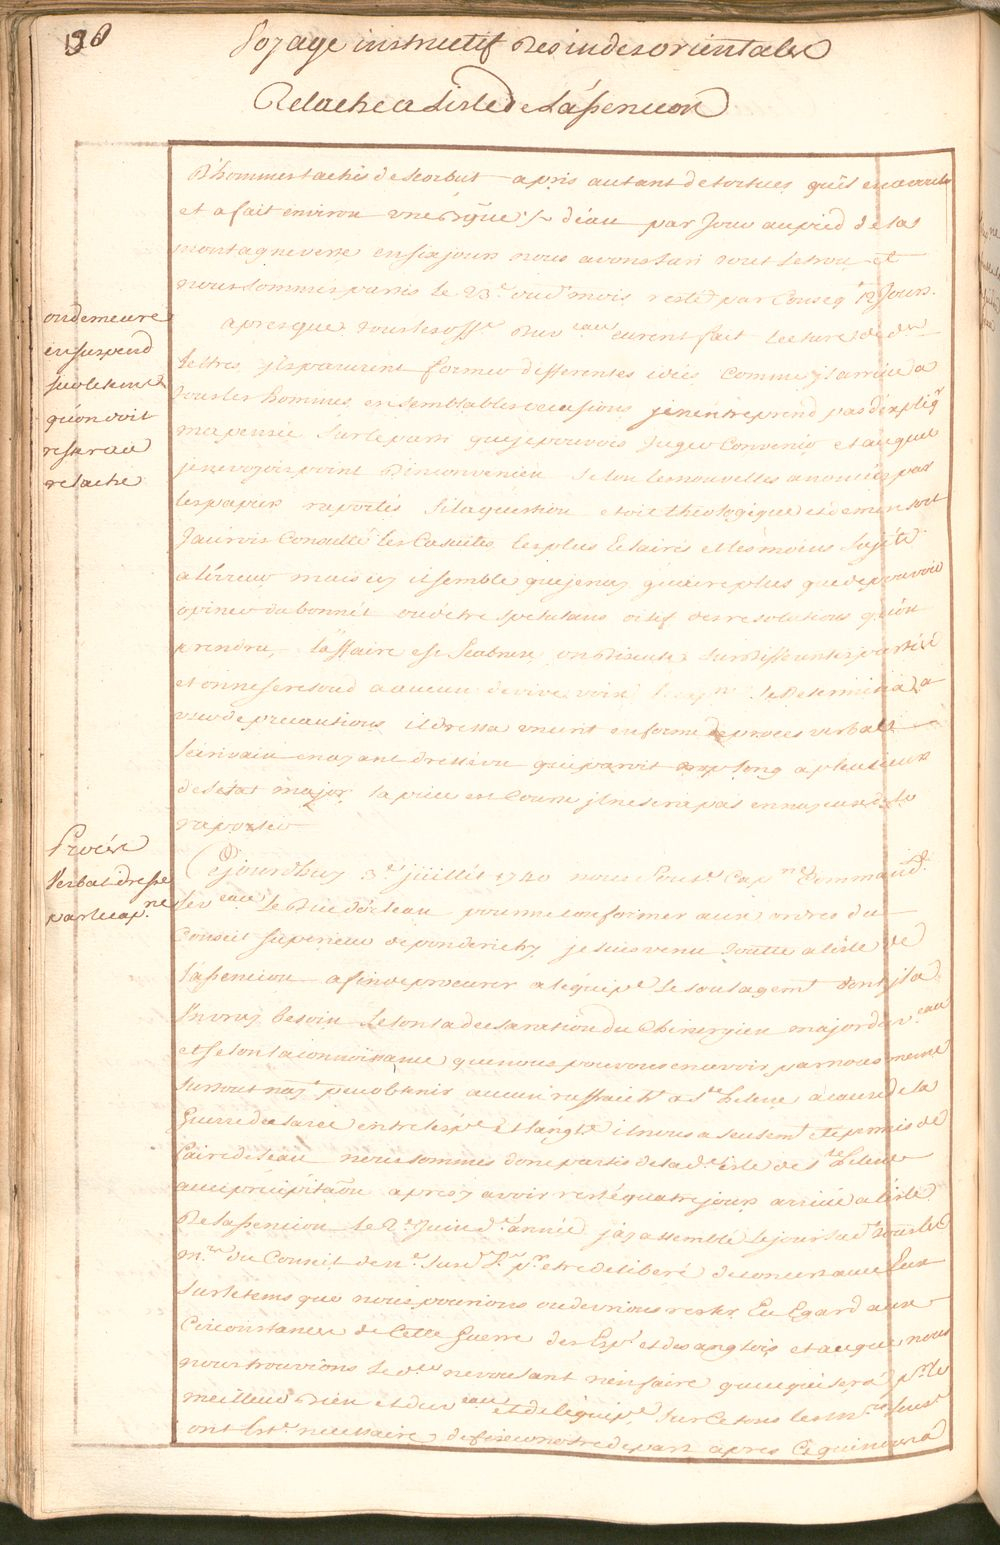 198
Voyage instructif des indes orientales
Relache a L'isle de L'assencion
D'hommes tachés de scorbut apris autant de tortues quil en a voulu
et a fait environ une d'eau par Jour au pied de la
montagne verte en six jours nous avons tari tout le trou et
nous sommes partis le 23e. du d. mois resté par Conseqt. 12 Jours.
on demeure
en suspend
sur le tems
qu'on doit
rester en
relache
apres que tous les offrs. du veau. eurent fait lecture de ces
Lettres ils parurent former differentes idées Comme il arrive a
tous les hommes en semblables occasions je n'entreprend pas d'expliqr
ma pensée sur le parti que je pouvois Juger Convenir et auquel
je ne voyois point D'inconvenien selon les nouvelles anoncées par
les papiers raportés Si la question etoit théologique et de mon sort
J'aurois Consulté les Casuites les plus Eclairés et les moins Sujets
a l'erreur mais icy il semble que je n'ay guere plus que de pouvoir
opiner du bonnet ou d'etre spectateur oisif des resolutions qu'on
prendra, l'affaire est scabreuse on Discute sur Differents partis
et on ne se resoud a aucun de vive voix le cape. le Determina a
user de precautions il dressa un ecrit en forme de proces verbal
l'ecrivain en ayant dressé un qui paroit trop long a plusieurs
de l'état major la piece est Courte il ne sera pas ennuyeux de la
raporter
Procés
Verbal dressé
par le capne.
Cejourd'huy 3e. juillet 1740 nous Souse. Capne. Command.
le veau. le Duc d'orleau pour me conformer aux ordres du
Conseil superieur de pondichery je suis venu a l'isle de
l'assencion afin de procurer a l'équipe. le soulagemt. dont il a
un vray besoin selon la declaration du Chirurgien major du veau.
et selon la connoissance que nous pouvons en avoir par nous meme
surtout nayt. peu obtenir aucun rafraicht. a Ste. helene a cause de la
Guerre declarée entre l'espe. et l'anglre. il nous a seulemt. eté permis de
faire de l'eau nous sommes donc partis de la de. isle de Ste. helene
avec précipitaon apres y avoir resté quatre jours arrivé a l'isle
De lassencion le 2e. Juin de. année j'ay assemblé le jour susd. tous les
Mrs. du Conseil de n. pr. etre deliberé de concert avec Eux
Sur le tems que nous pourions ou devrions rester Eu Egard aux
Circonstances de Cette Guerre des Espls. et des anglois et auquel nous
nous trouvions le d. ne voulant rien faire que ce qui sera pr. le
meilleur Bien et du veau. et de l'équipe. Sur Ce tous les Mrs. Sus.
ont Esté. necessaire, de fixer notre depart apres Ce qui nous a